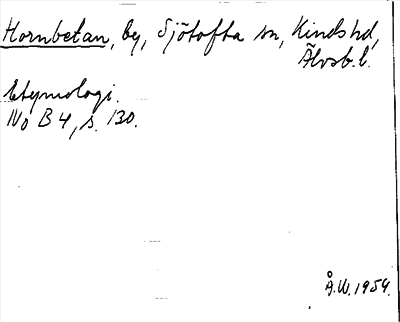 Hornbetan, by, Sjötofta sn, Kinds hd,
Älvsb. l.
Etymologi.
No B 4, s. 130.
Å.W. 1954.